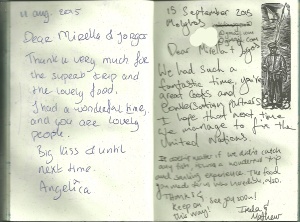 11 aug. 2015
Dear Mirella & Jorgos
Thank u very much for
the superb trip and
the lovely food.
I had a wonderful time,
and you are lovely
people.
Big kiss & until
next time.
Angelica
15 September 2015
Dear Mirella +
We had such a
fantastic time, you're
great cooks and
conversation partners
I hope that next time
we manage to fix the
United Nations
if we didn't catch
any fish, it was a wonderful trip
and sailing experience. The food
you made
Keep on
this way!
See you soon!